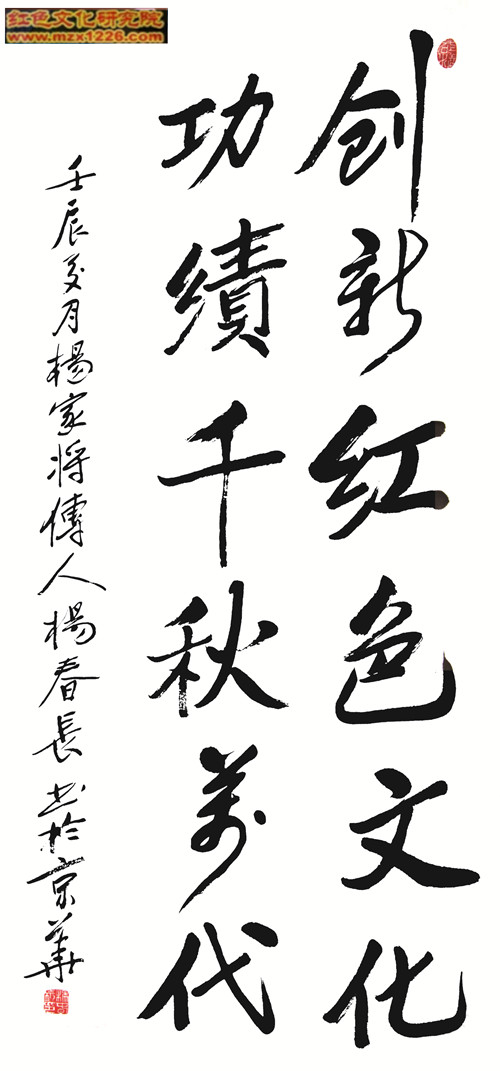 红色文化研究院
www.mzx1226.com
创新红色文化
功績千秋萬代
壬辰夏月楊家将傳人楊春長书於京華